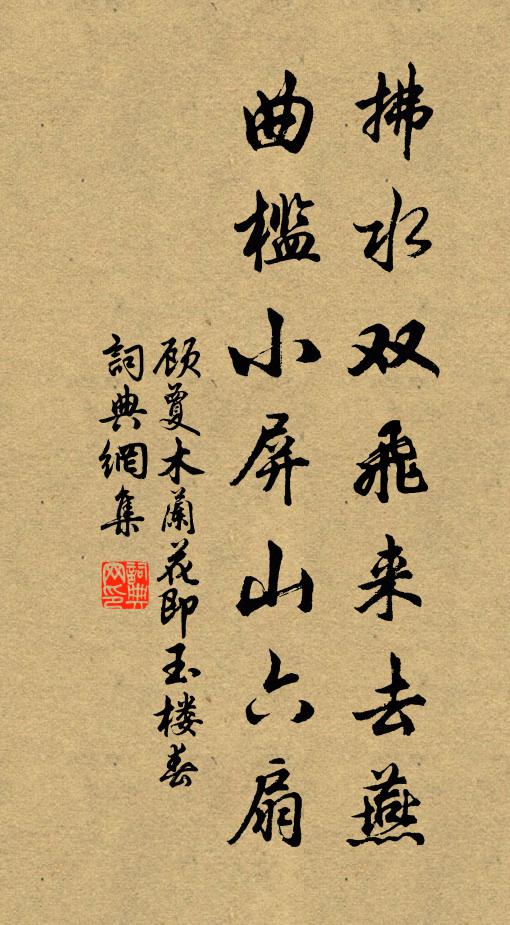 拂水双飛来去燕
曲槛小屏山六扇
顾夐木蘭花即玉楼春
詞典網集
詞典网印